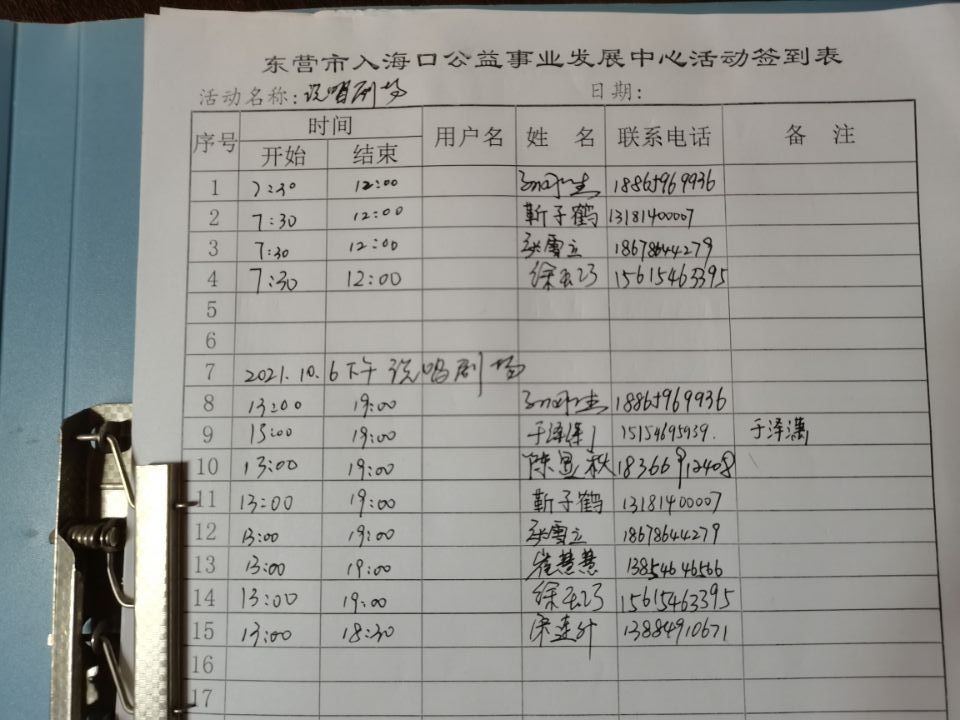 东营市入海口公益事业发展中心活动签到表
活动名称:说唱剧场 日期:
序号 时间 用户名 姓名 联系电话 备注
开始 结束
1 7:30 12:00 18865969936
2 7:30 12:00 靳子鹤 13181400007
3 7:30 12:00 张雪立 18678644279
4 7:30 12:00 徐玉巧 15615463395
5
6
7 2021.10.6下午说唱剧场
8 13:00 19:00 18865969936
9 13:00 19:00 于泽 15154695939. 于泽漢
10 13:00 19:00 陈显秋 18366912408
11 13:00 19:00 靳子鹤 13181400007
12 13:00 19:00 张雪立 18678644279
13 13:00 19:00 崔慧慧 13854646566
14 13:00 19:00 徐玉巧 15615463395
15 13:00 18:30 13884910671
16
17